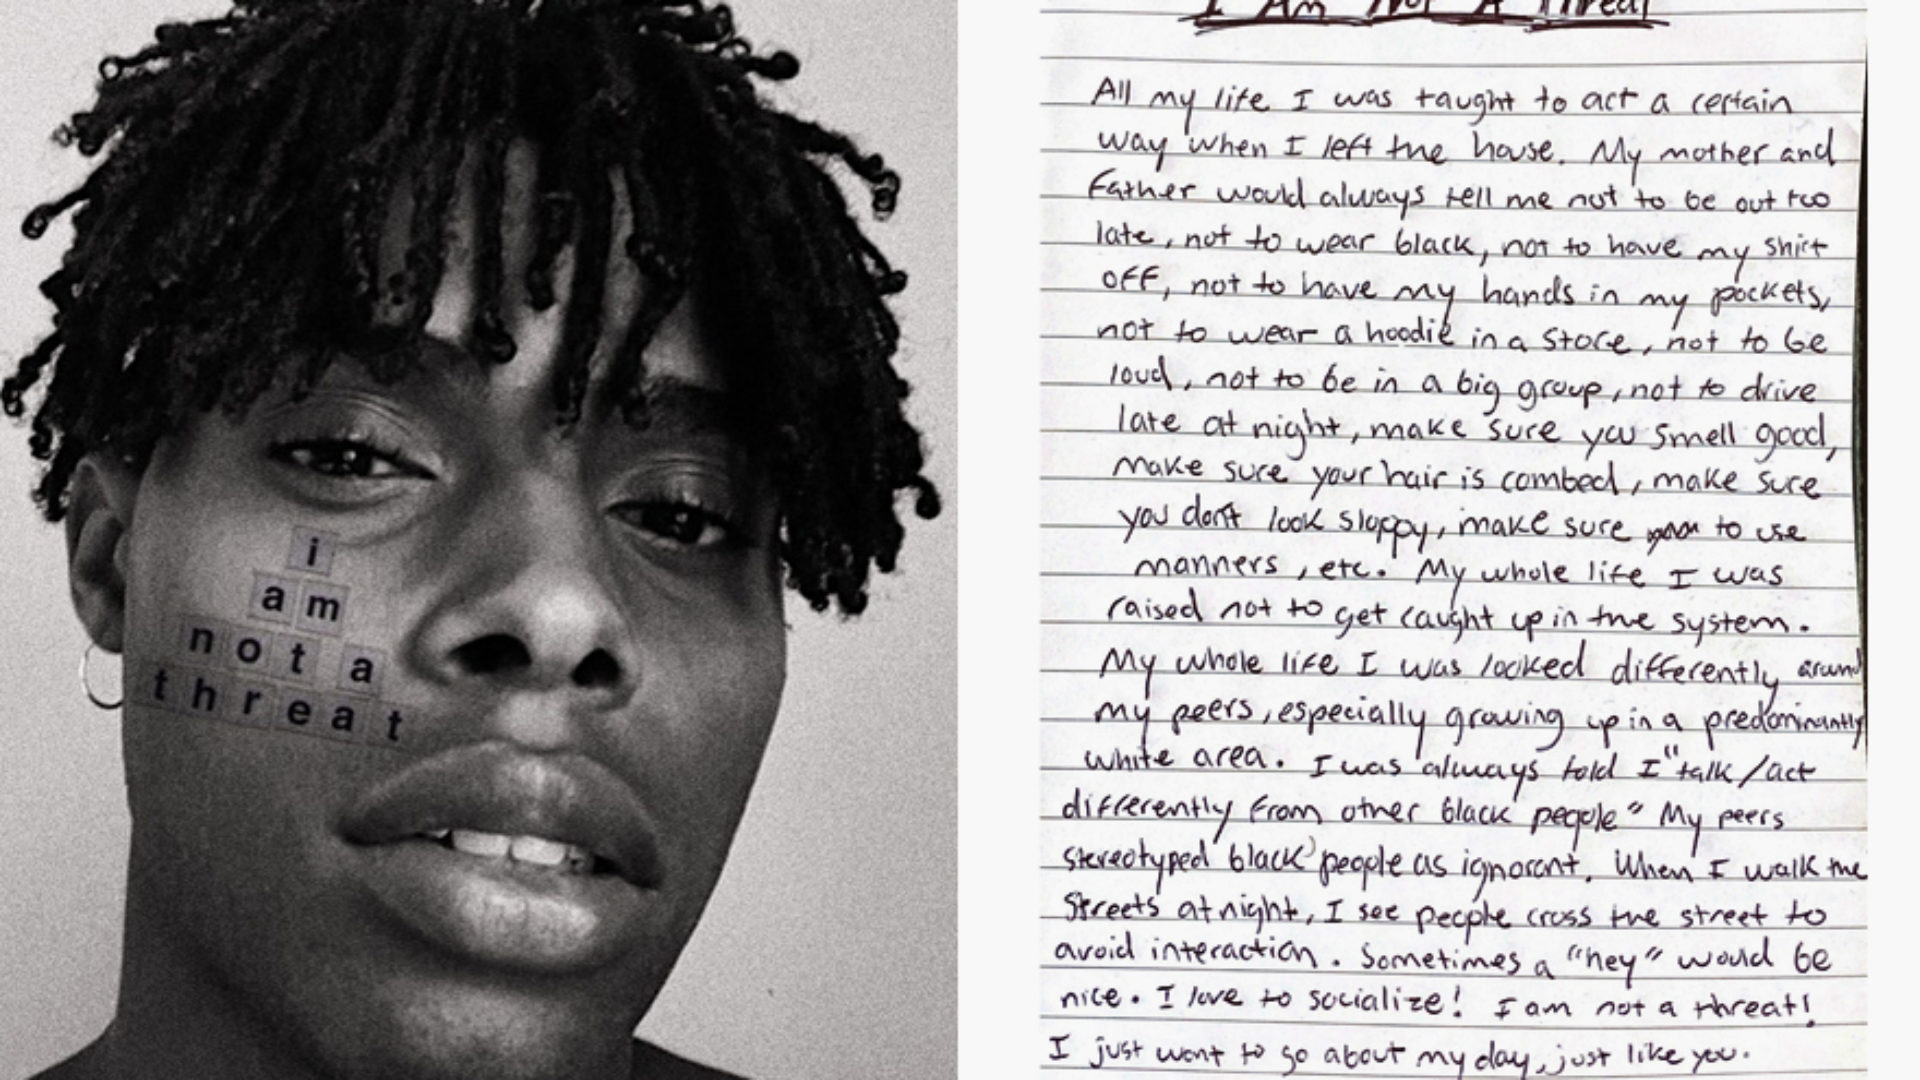 i
am
not a
threat
I Am Not A Threat
All my life I was taught to act a certain
way when I left the house. My mother and
Father would always tell me not to be out too
late, not to wear black, not to have my shirt
off, not to have my hands in my pockets,
not to wear a hoodie in a store, not to be
loud, not to be in a big group, not to drive
late at night, make sure you smell good,
make sure your hair is combed, make sure
you don't look sloppy, make sure to use
manners, etc. My whole life I was
raised not to get caught up in the system.
My whole life I was looked differently around
my peers, especially growing up in a predominantly
white area. I was always told I "talk/act
differently from other black people" My peers
stereotyped black people as ignorant. When I walk the
streets at night, I see people cross the street to
avoid interaction. Sometimes a "hey" would be
nice. I love to socialize! I am not a threat!
I just want to go about my day, just like you.